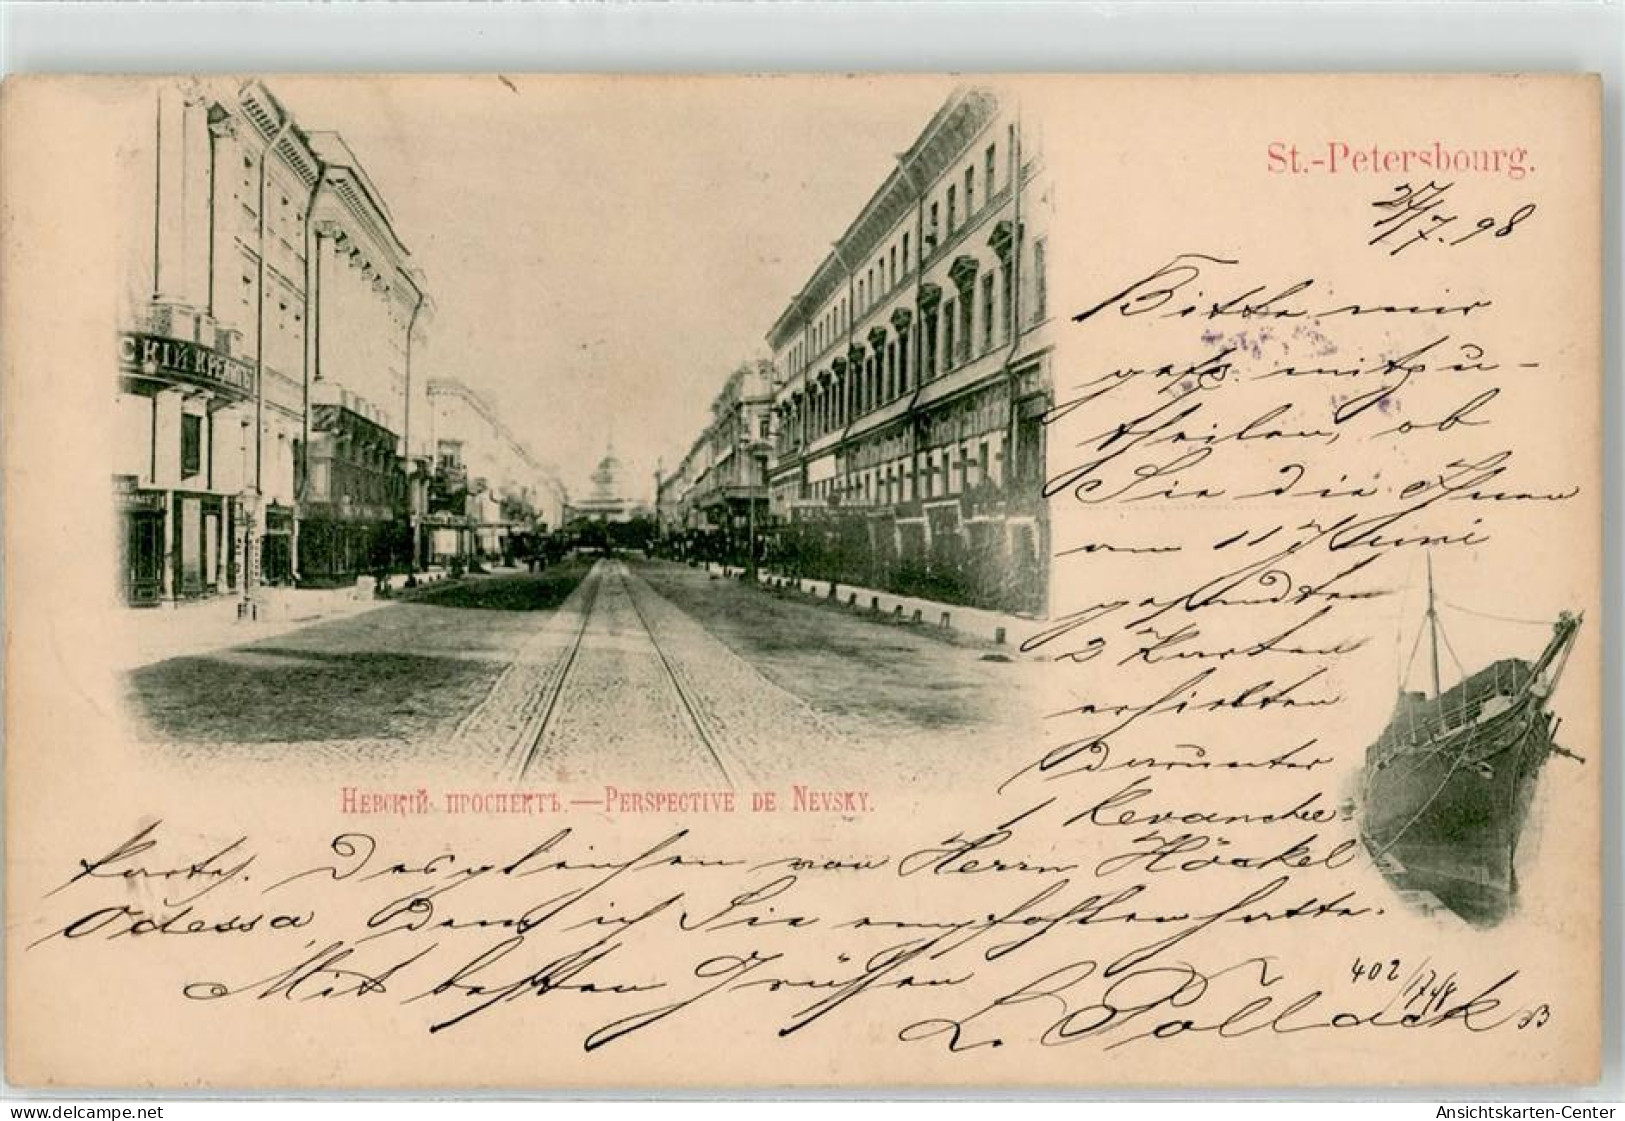 St.-Petersbourg.
27/7. 98
Bitte mir
gefs. mitzu-
theilen, ob
Sie die Ihnen
am 11/ Juni
gesandten
2 Karten
erhielten
darunter
Revanche=
СКІЙ КРЕДИТЪ
Невскій проспектъ.—Perspective de Nevsky.
karte. Desgleichen von Herrn Höckel
Odessa, dem ich Sie empfohlen hatte.
Mit besten Grüssen
L. Pollack
402
delcampe.net
Ansichtskarten-Center